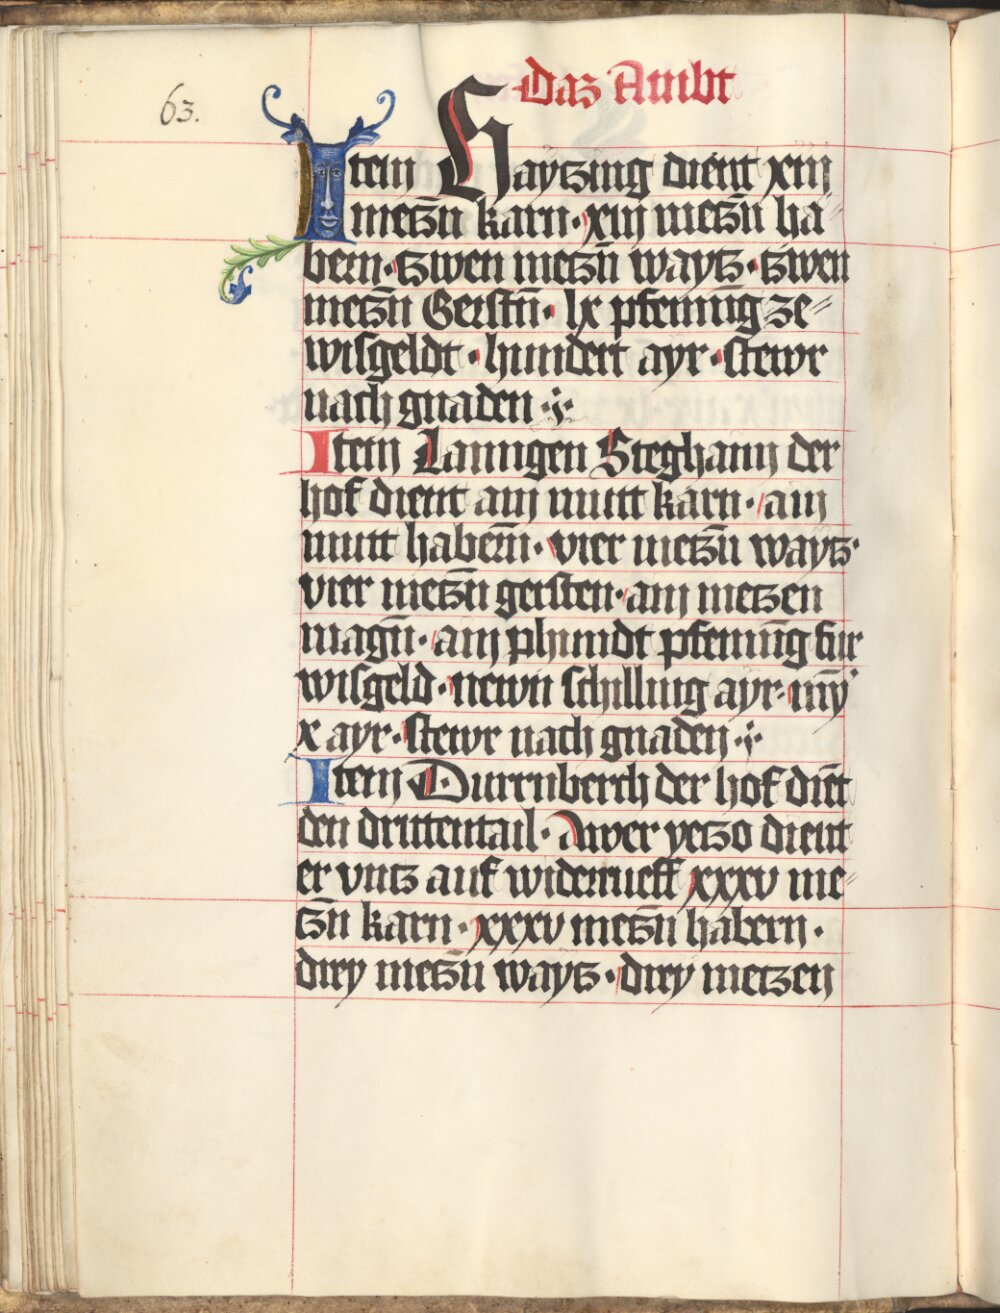 Daz Ambt
63.
Item Haytzing dient xiij
metzn̄ karn · xiij metzn̄ ha⸗
bern · tzwen metzn̄ wayts · tzwen
metzn̄ Gerstn̄ · lx pfennīg ze⸗
wisgeldt · hundert ayr · stewr
nach gnaden
Item Lanngen Steghann der
hof dient ain mutt karn · ain
mutt habern̄ · vier metzn̄ wayts ·
vier metzn̄ gersten · ain metzen
magn̄ · ain phundt pfennīg fur
wisgeld · newn schilling ayr · iiij
x ayr · stewr nach gnaden
Item Durrnberch der hof diēt
den drittentail · Awer yetzo dient
er vnts auf widerrueff xxxv me⸗
tzn̄ karn · xxxv metzn̄ habern ·
drey metzn̄ wayts · drey metzen